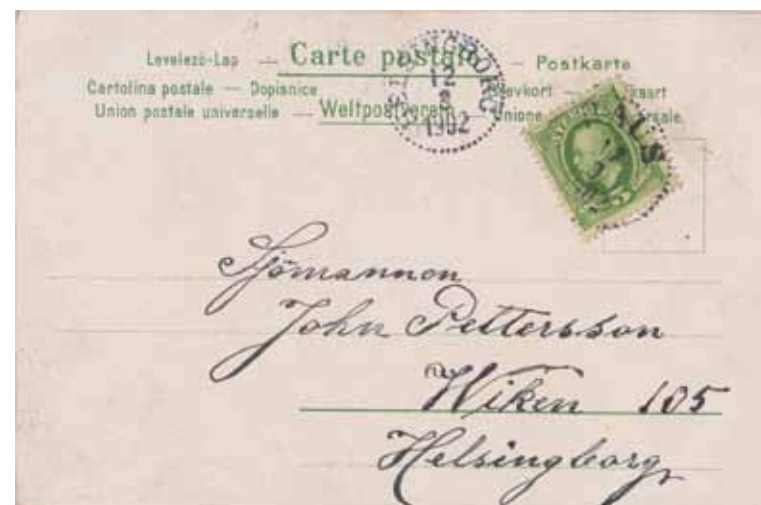 Levelezö-Lap — Carte postale — Postkarte
Cartolina postale — Dopisnice
Union postale universelle — Weltpostverein — Unione
HELSINGBORG
12
1902
Sjömannen
John Pettersson
Wiken 105
Helsingborg